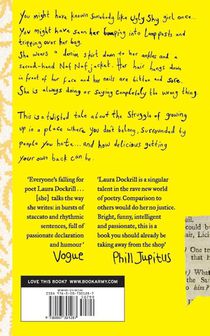 You might have known somebody like Ugly Shy girl once...
You might have seen her bumping into lampposts and
tripping over her bag.
She wears a denim skirt down to her ankles and a
second-hand Not Not jacket. Her hair hangs down
in front of her face and her nails are bitten and sore.
She is always doing or saying completely the wrong thing.
This is a twisted tale about the struggle of growing
up in a place where you don't belong, surrounded by
people you hate...and how delicious getting
your own back can be.
'Everyone's falling for
poet Laura Dockrill ...
[she] talks the way
she writes: in bursts of
staccato and rhythmic
sentences, full of
passionate declaration
and humour'
Vogue
'Laura Dockrill is a singular
talent in the rave new world
of poetry. Comparison to
others would do her no justice.
Bright, funny, intelligent
and passionate, this is a
book you should already be
taking away from the shop'
Phill Jupitus
LOVE THIS BOOK? WWW.BOOKARMY.COM